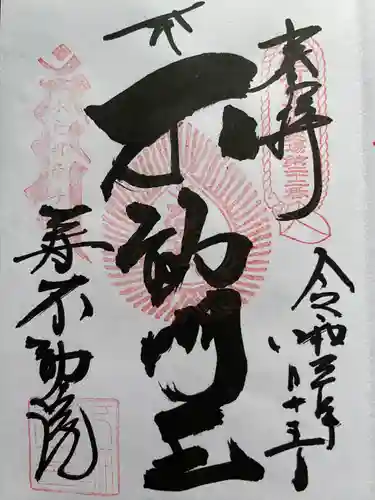 奉拝
令和三年
八月十三日
不動明王
寿不動院